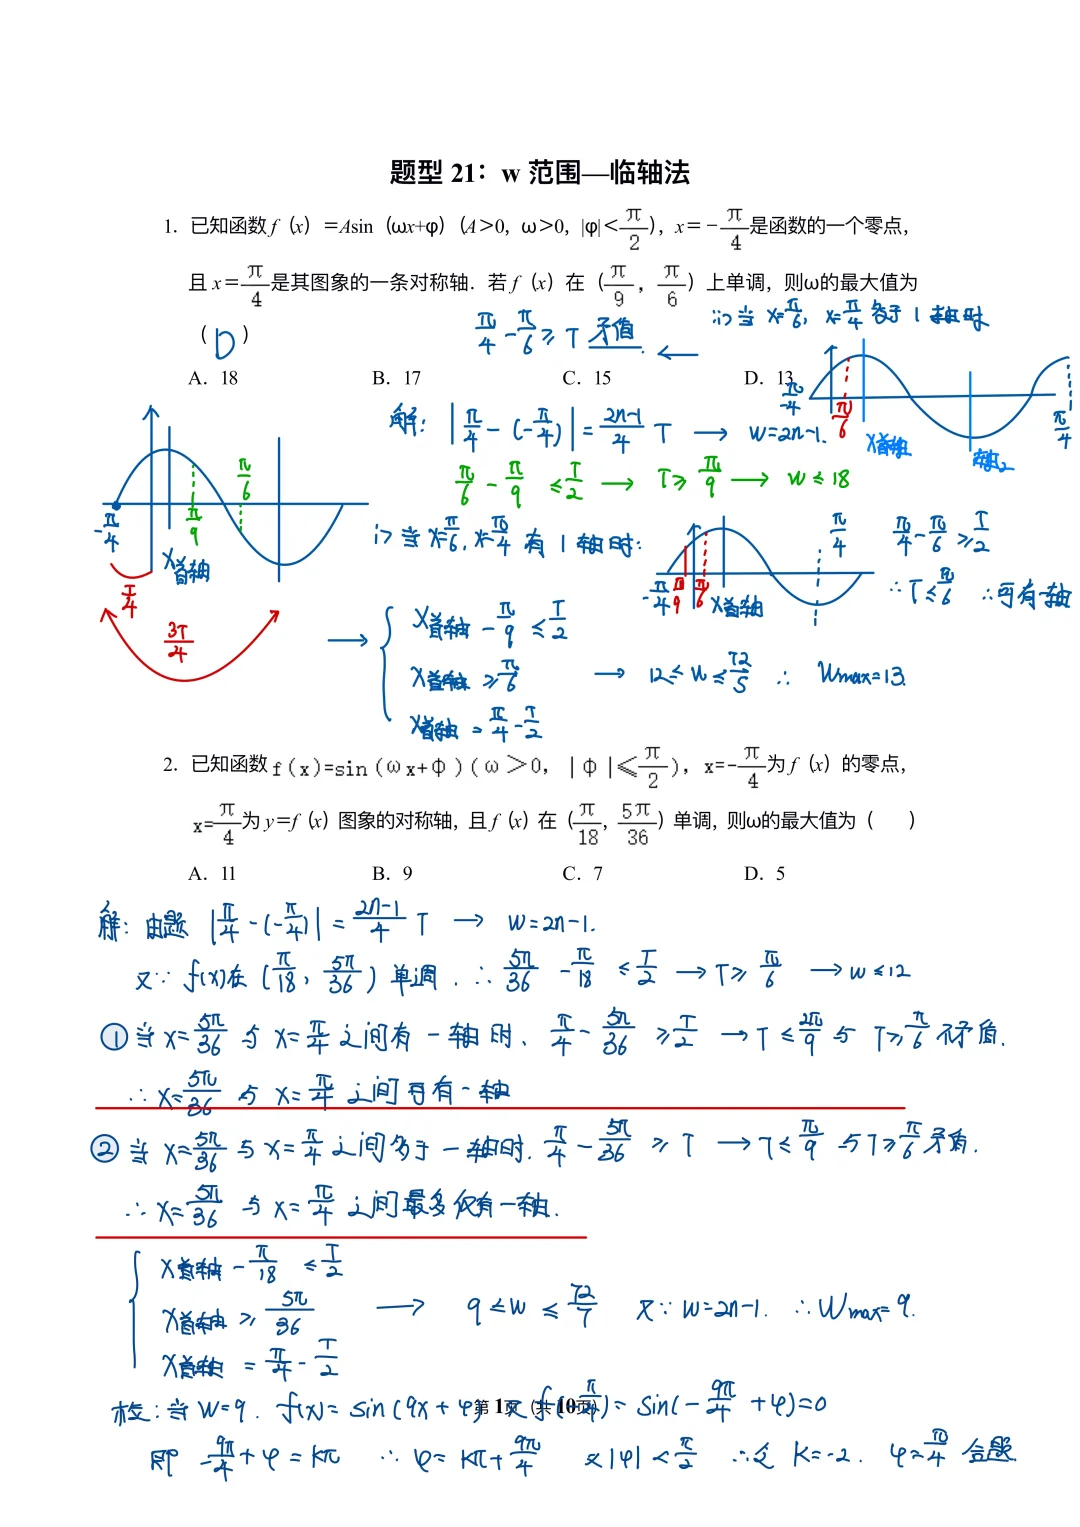 题型 21：w 范围—临轴法
1．已知函数 f（x）＝Asin（ωx+φ）（A＞0，ω＞0，|φ|＜π/2），x＝－π/4是函数的一个零点，
且 x＝π/4是其图象的一条对称轴．若 f（x）在（π/9，π/6）上单调，则ω的最大值为
（ D ）
π/4 - π/6 ≥ T 矛盾. ←
ii> 当 x=π/6, x=π/4 多于 1 轴时
A．18 B．17 C．15 D．13
解: |π/4 - (-π/4)| = (2n-1)/4 T → w=2n-1.
-π/4 π/6 x首轴 轴2 π/4
π/6 - π/9 ≤ T/2 → T≥ π/9 → w ≤ 18
-π/4 x首轴 π/9 π/6
T/4
3T/4
i> 当 x=π/6, x=π/4 有 1 轴时:
-π/4 π/9 π/6 x首轴 π/4
π/4 - π/6 ≥ T/2
∴ T≤ π/6 ∴可有一轴
→ { x首轴 - π/9 ≤ T/2
x首轴 ≥ π/6 → 12 ≤ w ≤ 72/5 ∴ wmax=13.
x首轴 = π/4 - T/2
2．已知函数 f(x)=sin(ωx+φ)(ω＞0，|φ|≤π/2)，x=-π/4为 f（x）的零点，
x=π/4为 y＝f（x）图象的对称轴，且 f（x）在（π/18，5π/36）单调，则ω的最大值为（ ）
A．11 B．9 C．7 D．5
解: 由题 |π/4 - (-π/4)| = (2n-1)/4 T → w=2n-1.
又∵ f(x)在 (π/18, 5π/36) 单调. ∴ 5π/36 - π/18 ≤ T/2 → T≥ π/6 → w ≤12
① 当 x=5π/36 与 x=π/4 之间有一轴时、π/4 - 5π/36 ≥ T/2 → T ≤ 2π/9 与 T≥ π/6 不矛盾.
∴ x=5π/36 与 x=π/4 之间可有一轴
② 当 x=5π/36 与 x=π/4 之间多于一轴时. π/4 - 5π/36 ≥ T → T≤ π/9 与 T≥ π/6 矛盾.
∴ x=5π/36 与 x=π/4 之间最多仅有一轴.
{ x首轴 - π/18 ≤ T/2
x首轴 ≥ 5π/36 → 9 ≤ w ≤ 72/7 又∵ w=2n-1. ∴ wmax=9.
x首轴 = π/4 - T/2
检: 当 w=9. f(x)= sin(9x+φ) 又 f(-π/4)= sin(-9π/4 + φ)=0
第 1页（共 10页）
即 -9π/4 + φ = kπ ∴ φ= kπ + 9π/4 又|φ| < π/2 ∴ 令 k=-2. φ=π/4 合题.